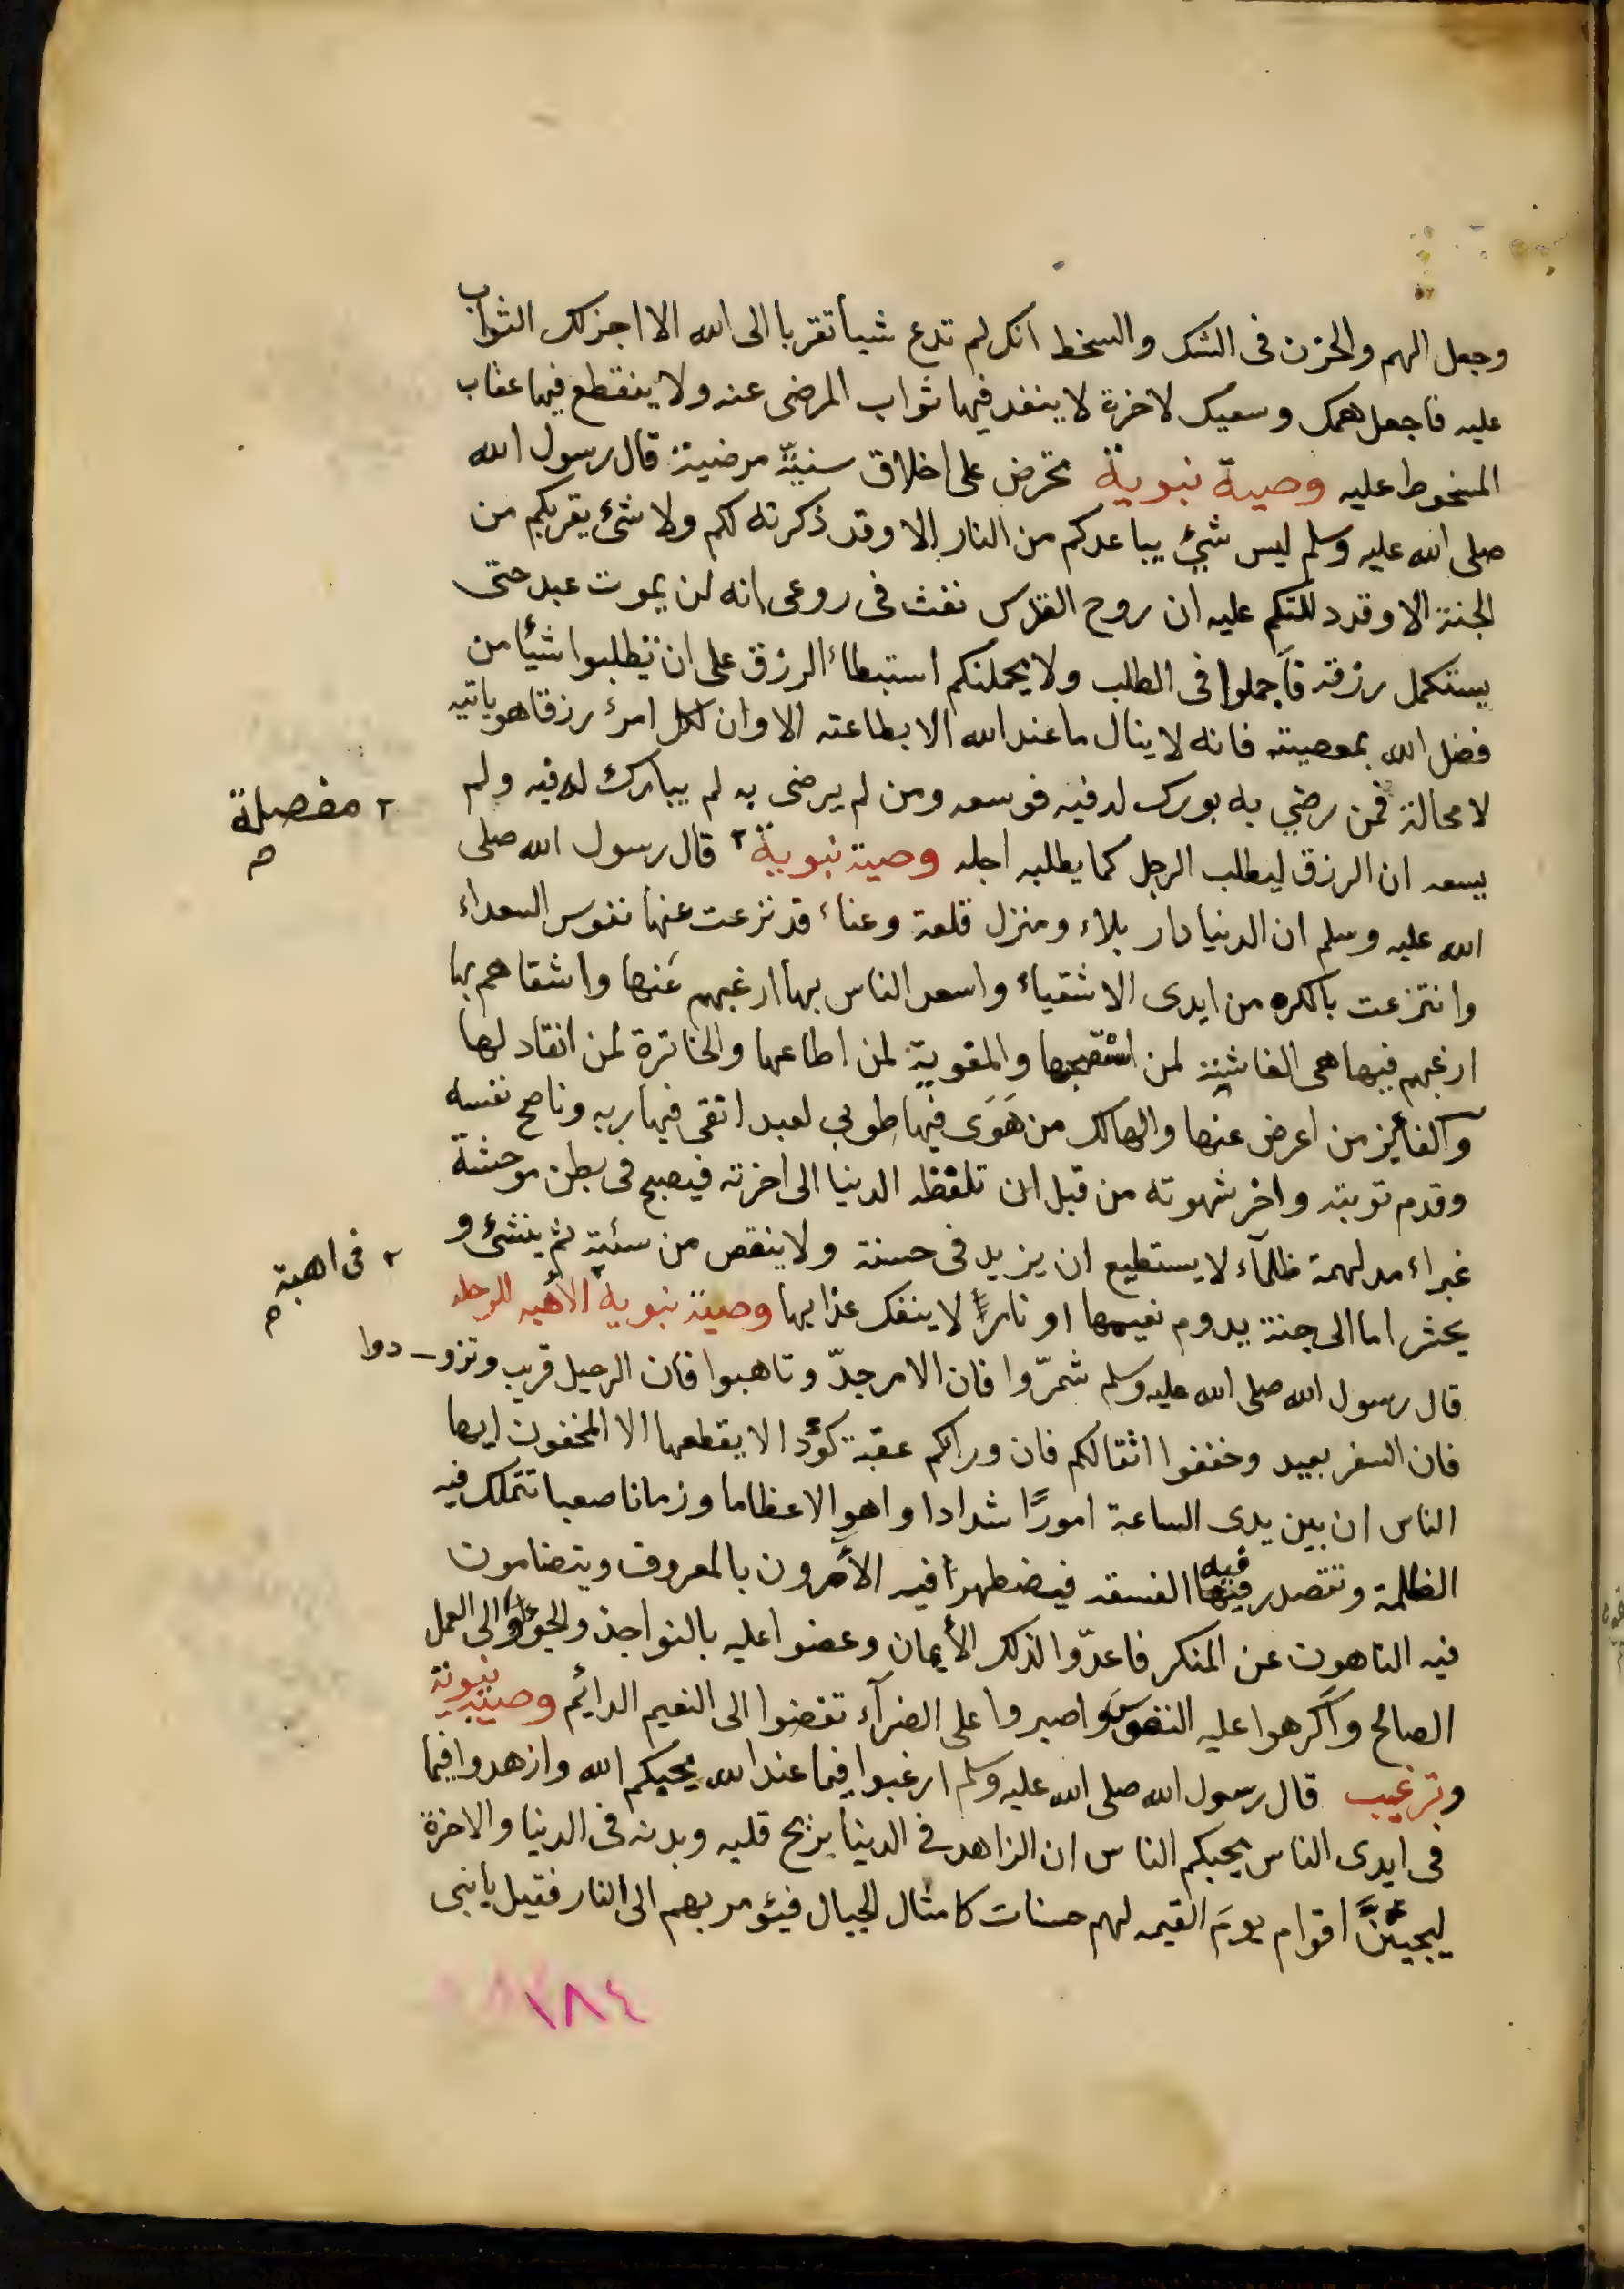 وجعل الهم والحزن فى الشك والسخط انك لم تدع شيأ تقربا الى الله الا اجزلك الثواب
عليه فاجعل همك وسعيك لاخرة لا ينفد فيها ثواب المرضى عنه ولا ينقطع فيها عقاب
المسخوط عليه وصية نبوية تحرض على اخلاق سنيّة مرضية قال رسول الله
صلى الله عليه وسلم ليس شئ يباعدكم من النار الا وقد ذكرته لكم ولا شئ يقربكم من
الجنة الا وقد دللتكم عليه ان روح القدس نفث فى روعى انه لن يموت عبد حتى
يستكمل رزقه فاجملوا فى الطلب ولا يحملنكم استبطاء الرزق على ان تطلبوا شيأ من
فضل الله بمعصيته فانه لا ينال ما عند الله الا بطاعته الا وان لكل امرئ رزقا هو ياتيه
لا محالة فمن رضي به بورك له فيه فوسعه ومن لم يرضى به لم يبارك له فيه ولم
٢ مفصلة
يسعه ان الرزق ليطلب الرجل كما يطلبه اجله وصية نبوية ٢ قال رسول الله صلى
الله عليه وسلم ان الدنيا دار بلاء ومنزل قلعة وعناء قد نزعت عنها نفوس السعداء
وانتزعت بالكره من ايدى الاشقياء واسعد الناس بها ارغبهم عنها واشقاهم بها
ارغبهم فيها هى الغاشية لمن والمغوية لمن اطاعها والخاترة لمن انقاد لها
والفائيز من اعرض عنها والهالك من هَوَى فيها طوبى لعبد اتقى فيها ربه وناصح نفسه
وقدم توبته واخر شهوته من قبل ان تلفظه الدنيا الى اخرته فيصبح فى بطن موحشة
غبراء مدلهمة ظلمآء لا يستطيع ان يزيد فى حسنة ولا ينقص من سئية ثم ينشئ و
٢ فى اهبة
يحشر اما الى جنة يدوم نعيمها او نارا لا ينفك عذابها وصية نبوية الأهبه للرحله
قال رسول الله صلى الله عليه وسلم شمّروا فان الامر جدّ وتاهبوا فان الرحيل قريب وتزودوا
فان السفر بعيد وخففوا اثقالكم فان ورائكم عقبة كؤدا لا يقطعها الا المخفون ايها
الناس ان بين يدى الساعة امورًا شدادا واهوالا عظاما وزمانا صعبا تتملك فيه
الظلمة وتتصدر فيه الفسقه فيضطهر فيه الأمرون بالمعروف ويتضامون
فيه الناهون عن المنكر فاعدّوا لذلك الأيمان وعضوا عليه بالنواجذ والجؤا الى العمل
الصالح واكرهوا عليه النفوس واصبروا على الضرآء تفضوا الى النعيم الدائيم وصية نبوية
وترغيب قال رسول الله صلى الله عليه وسلم ارغبوا فيما عند الله يحبكم الله وازهدوا فيما
فى ايدى الناس يحبكم الناس ان الزاهد فى الدنيا يريح قلبه وبدنه فى الدنيا والاخرة
ليجيئنَّ اقوام يومَ القيمه لهم حسنات كامثال الجبال فيئومر بهم الى النار فقيل يا نبى
١٨٤